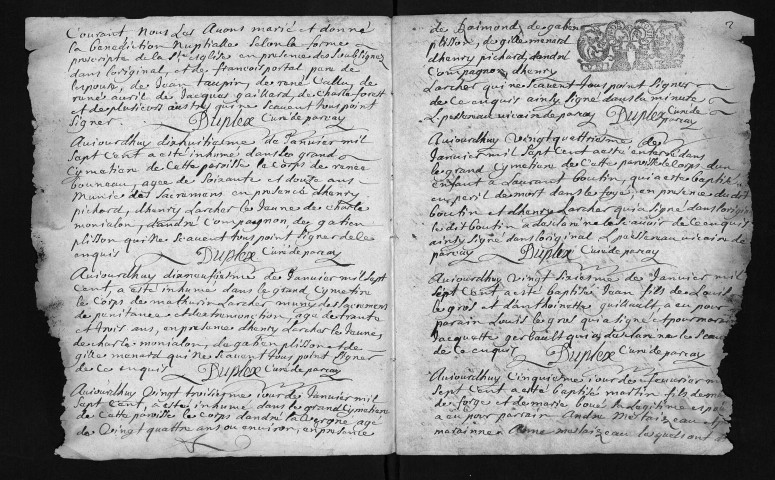 Courant, nous Les Avons marié et donné
la benediction Nuptialle Selon la forme
prescripte de la Ste église en presence des Soubsignez
dans l'original, et de francois portal pere de
de Jean taupin, de rané Callu, de
rané auril, de Jacques gaillard, de Charle forest
et de plusieurs austre qui ne Scauent tous point
Signer. Duplex Curé de parcay
Aujourdhuy dixhuitiesme de Januier mil
Sept Cent a esté inhumé dans le grand
Cymetiere de Cette paroisse le Corps de ranée
bonneau, agée de Soixante et douze ans
Munie des Sacremens en presence dhenry
pichard, dhenry Larcher le Jeune de charle
monialon, dandré Compagnon de gatien
plisson qui ne Scauent tous point Signer de ce
enquis Duplex Curé de parcay
Aujourdhuy dixneufiesme de Januier mil Sept
Cent, a esté inhumé dans le grand Cymetiere
le Corps de mathurin Larcher muny des Sacremens
de penitance et d'extremonction, agé de trante
et trois ans, en presence dhenry Larcher le Jeune
de charle monialon, de gatien plisson et de
gille menard qui ne Scauent tous point Signer
de ce enquis Duplex Curé de parcay
Aujourdhuy Vingt troisiesme iour de Januier mil
Sept Cent, a esté inhumé dans le grand Cymetiere
de Cette paroisse le Corps dandré la age
de Vingt quattre ans ou enuiron, en presence
2
de Raimond, de gatien
plisson, de gille menard
dhenry pichard, dandré
Compagnon, dhenry
Larcher qui ne Scauent tous point Signer
de Ce enquis ainsy Signé dans la minute
L. vicaire de parcay Duplex Curé de parcay
Aujourdhuy Vingt quattriesme de
Januier mil Sept Cent a esté enterré dans
le grand Cymetiere de Cette paroisse le Corps dun
enfant a Laurant boutin, qui a esté baptisé
en peril de mort dans le en presence du dit
boutin et dhenry Larcher qui a Signé dans lorig
le dit boutin a declaré ne le Scauoir de ce enquis
ainsy Signé dans loriginal L. vicaire de
parcay Duplex Curé de parcay
Aujourdhuy Vingt Sixiesme de Januier mil
Sept Cent a esté baptisé Jean fils de Louis
le gros et danthoinette guillault, a eu pour
parain Louis le gros qui a Signé et pour marain
Jacquette gerbault qui a declaré ne le Scau
de Ce enquis Duplex Curé de parcay
Aujourdhuy Cinquiesme iour de feurier m
Sept Cent a esté baptisé martin fils de
de forge et de marie
a eu pour parrain André
marainne Anne lesquels ont